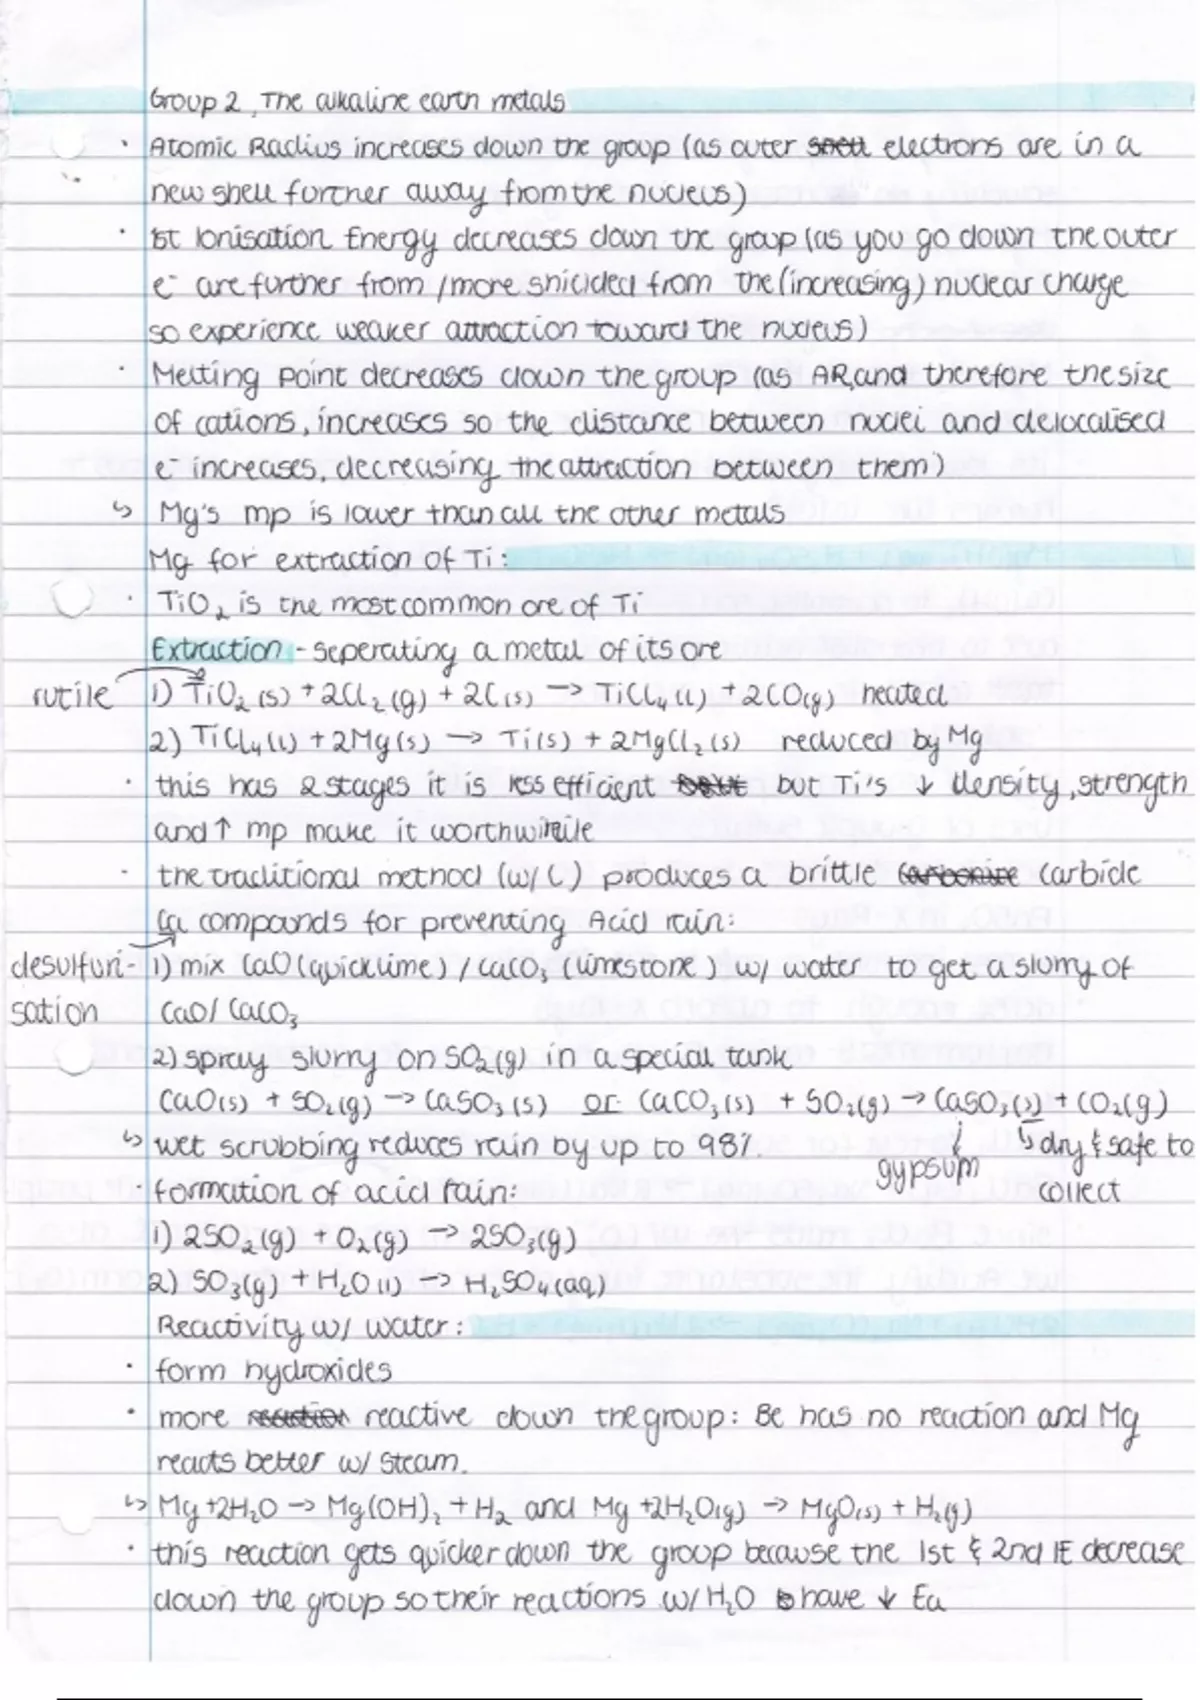 Group 2, The alkaline earth metals
· Atomic Radius increases down the group (as outer shell electrons are in a
new shell further away from the nucleus)
· 1st Ionisation Energy decreases down the group (as you go down the outer
e⁻ are further from / more shielded from the (increasing) nuclear charge
so experience weaker attraction toward the nucleus)
· Melting point decreases down the group (as AR, and therefore the size
of cations, increases so the distance between nuclei and delocalised
e⁻ increases, decreasing the attraction between them)
↳ Mg's mp is lower than all the other metals
Mg for extraction of Ti:
· TiO₂ is the most common ore of Ti
Extraction - seperating a metal of its ore
rutile 1) TiO₂ (s) + 2Cl₂ (g) + 2C (s) → TiCl₄ (l) + 2CO(g) heated
2) TiCl₄ (l) + 2Mg (s) → Ti(s) + 2MgCl₂ (s) reduced by Mg
· this has 2 stages it is less efficient but Ti's ↓ density, strength
and ↑ mp make it worthwhile
· the traditional method (w/ C) produces a brittle carbide
Ca compounds for preventing Acid rain:
desulfuri- 1) mix CaO (quicklime) / CaCO₃ (limestone) w/ water to get a slurry of
sation CaO / CaCO₃
2) spray slurry on SO₂ (g) in a special tank
CaO(s) + SO₂ (g) → CaSO₃ (s) or CaCO₃ (s) + SO₂(g) → CaSO₃(s) + CO₂(g)
↳ wet scrubbing reduces rain by up to 98%. gypsum ↳ dry & safe to
collect
· formation of acid rain:
1) 2SO₂ (g) + O₂ (g) → 2SO₃(g)
2) SO₃(g) + H₂O (l) → H₂SO₄ (aq)
Reactivity w/ water:
· form hydroxides
· more reaction reactive down the group: Be has no reaction and Mg
reacts better w/ steam.
↳ Mg + 2H₂O → Mg(OH)₂ + H₂ and Mg + 2H₂O(g) → MgO(s) + H₂(g)
· this reaction gets quicker down the group because the 1st & 2nd IE decrease
down the group so their reactions w/ H₂O have ↓ Ea